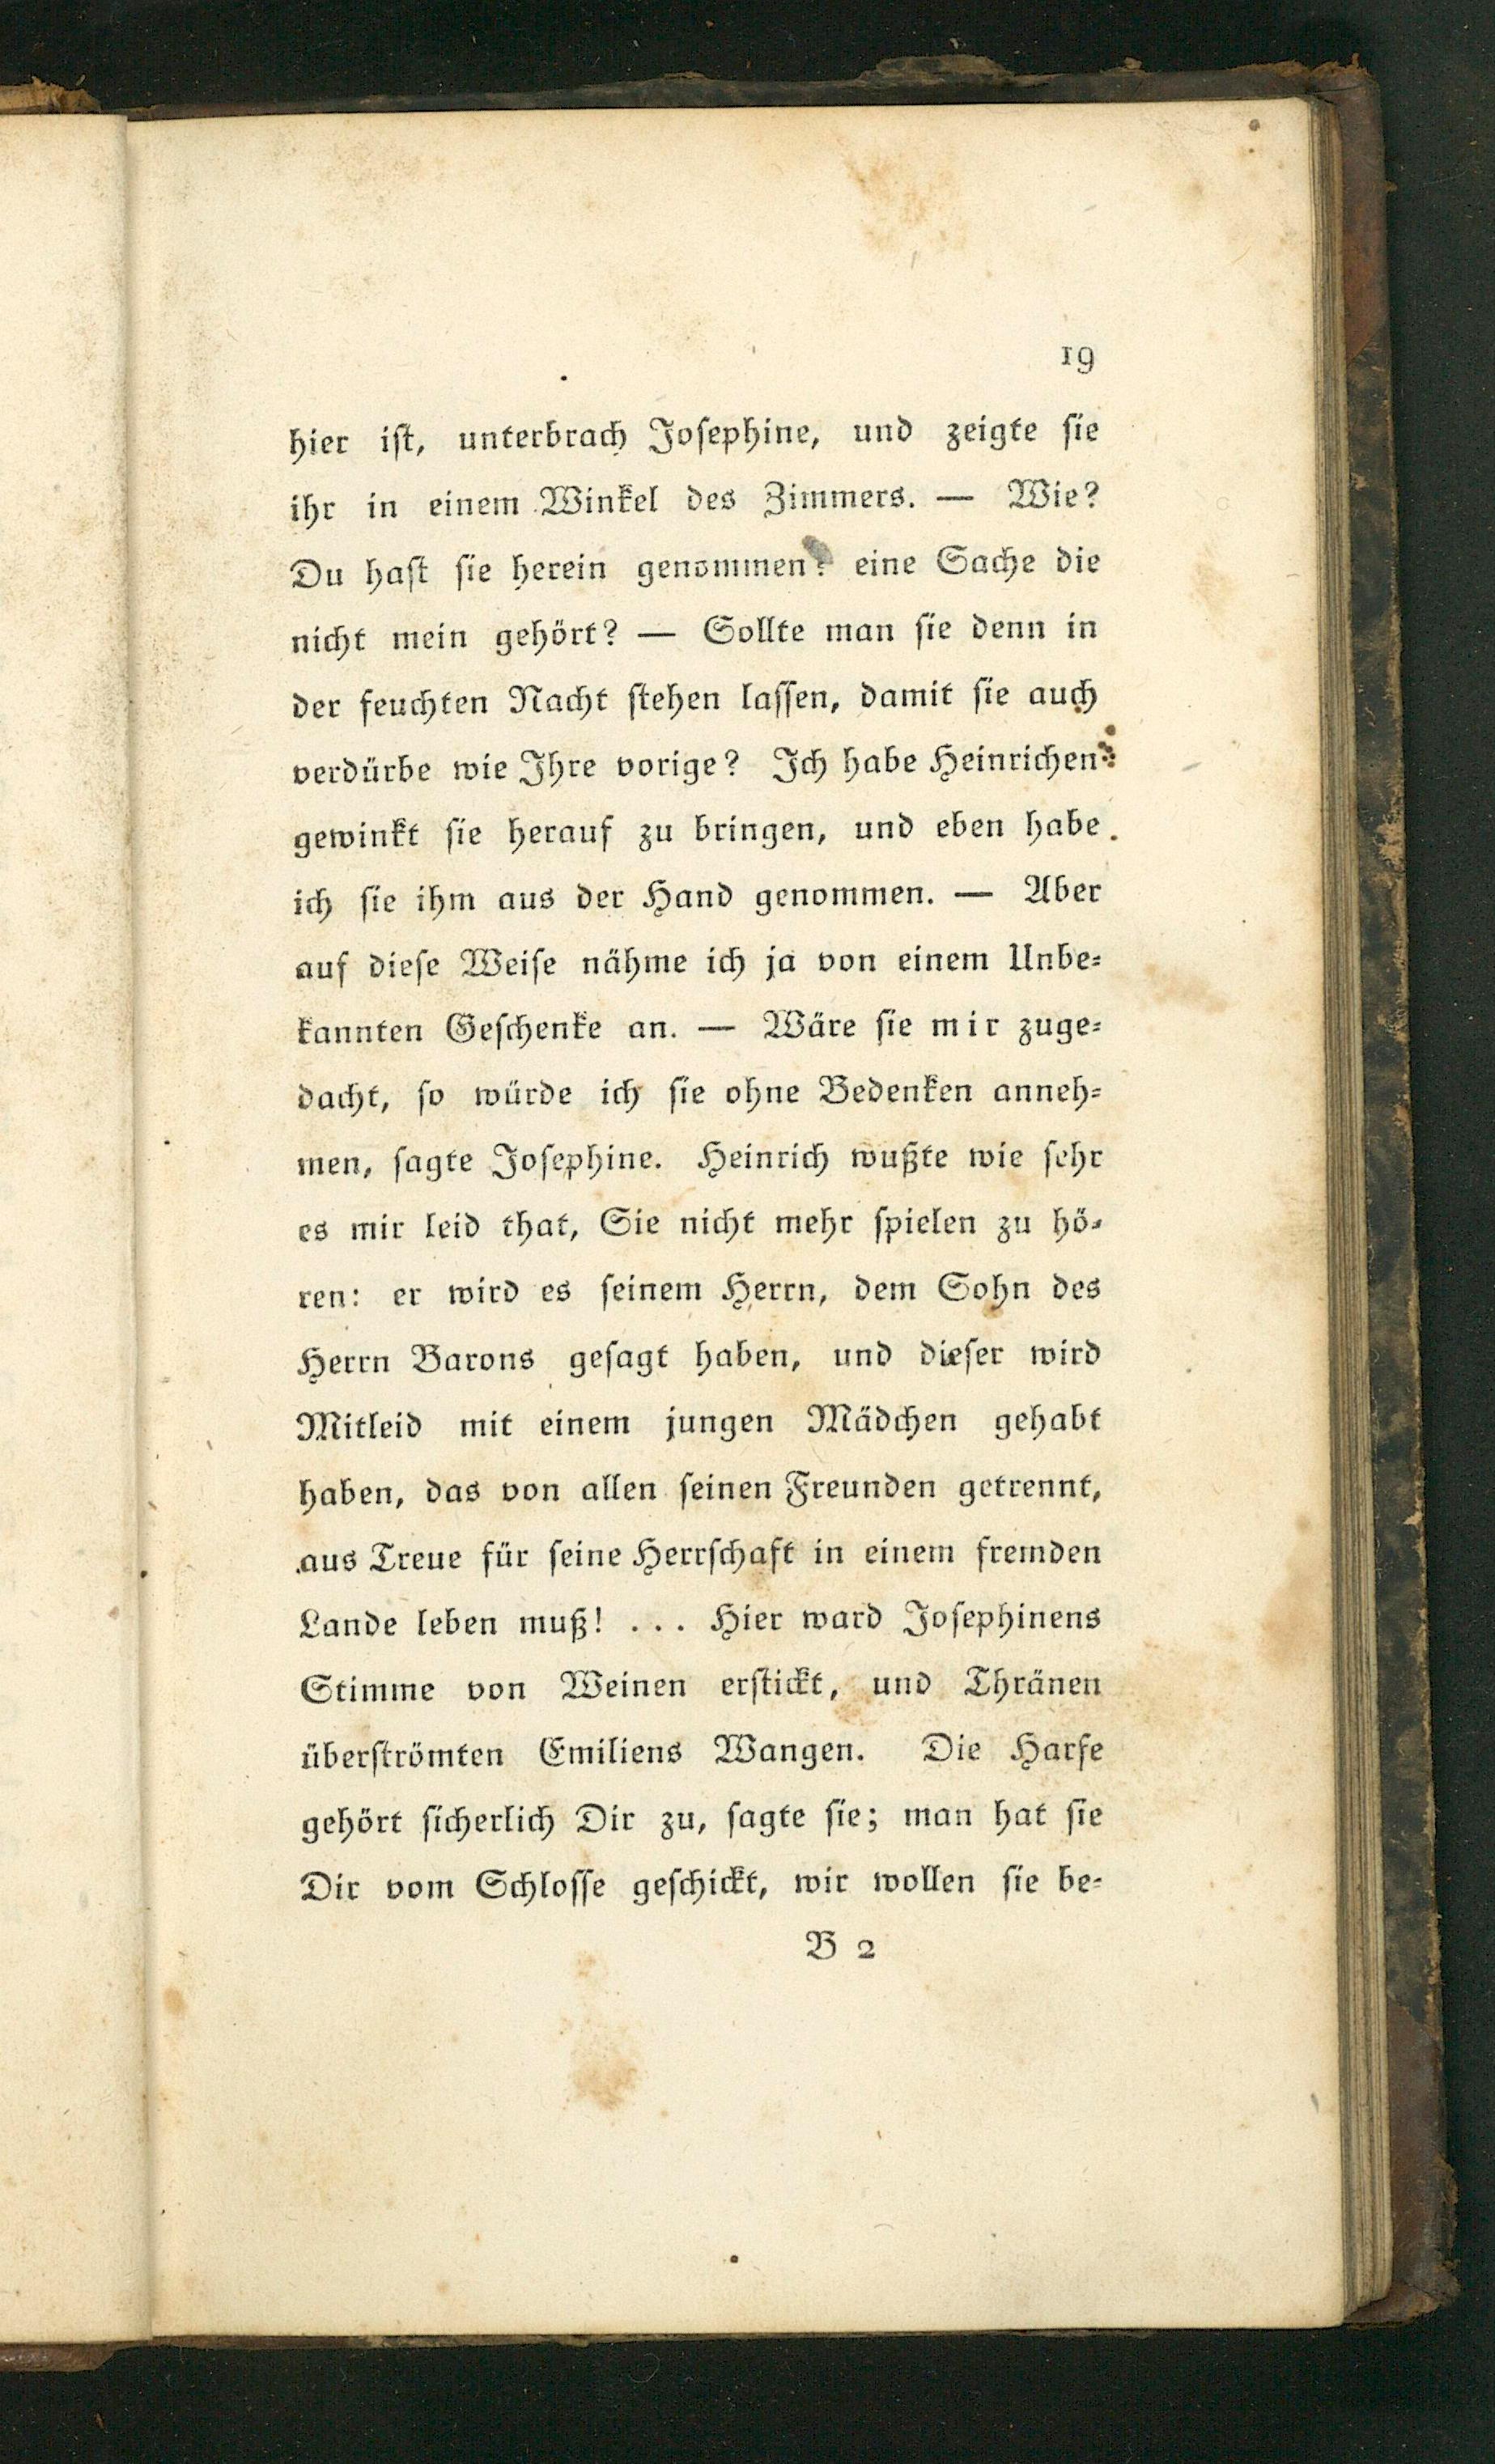 19
hier ist, unterbrach Josephine, und zeigte sie
ihr in einem Winkel des Zimmers. — Wie?
Du hast sie herein genommen? eine Sache die
nicht mein gehört? — Sollte man sie denn in
der feuchten Nacht stehen lassen, damit sie auch
verdürbe wie Ihre vorige? Ich habe Heinrichen
gewinkt sie herauf zu bringen, und eben habe
ich sie ihm aus der Hand genommen. — Aber
auf diese Weise nähme ich ja von einem Unbe-
kannten Geschenke an. — Wäre sie mir zuge-
dacht, so würde ich sie ohne Bedenken anneh-
men, sagte Josephine. Heinrich wußte wie sehr
es mir leid that, Sie nicht mehr spielen zu hö-
ren: er wird es seinem Herrn, dem Sohn des
Herrn Barons gesagt haben, und dieser wird
Mitleid mit einem jungen Mädchen gehabt
haben, das von allen seinen Freunden getrennt,
aus Treue für seine Herrschaft in einem fremden
Lande leben muß! ... Hier ward Josephinens
Stimme von Weinen erstickt, und Thränen
überströmten Emiliens Wangen. Die Harfe
gehört sicherlich Dir zu, sagte sie; man hat sie
Dir vom Schlosse geschickt, wir wollen sie be-
B 2